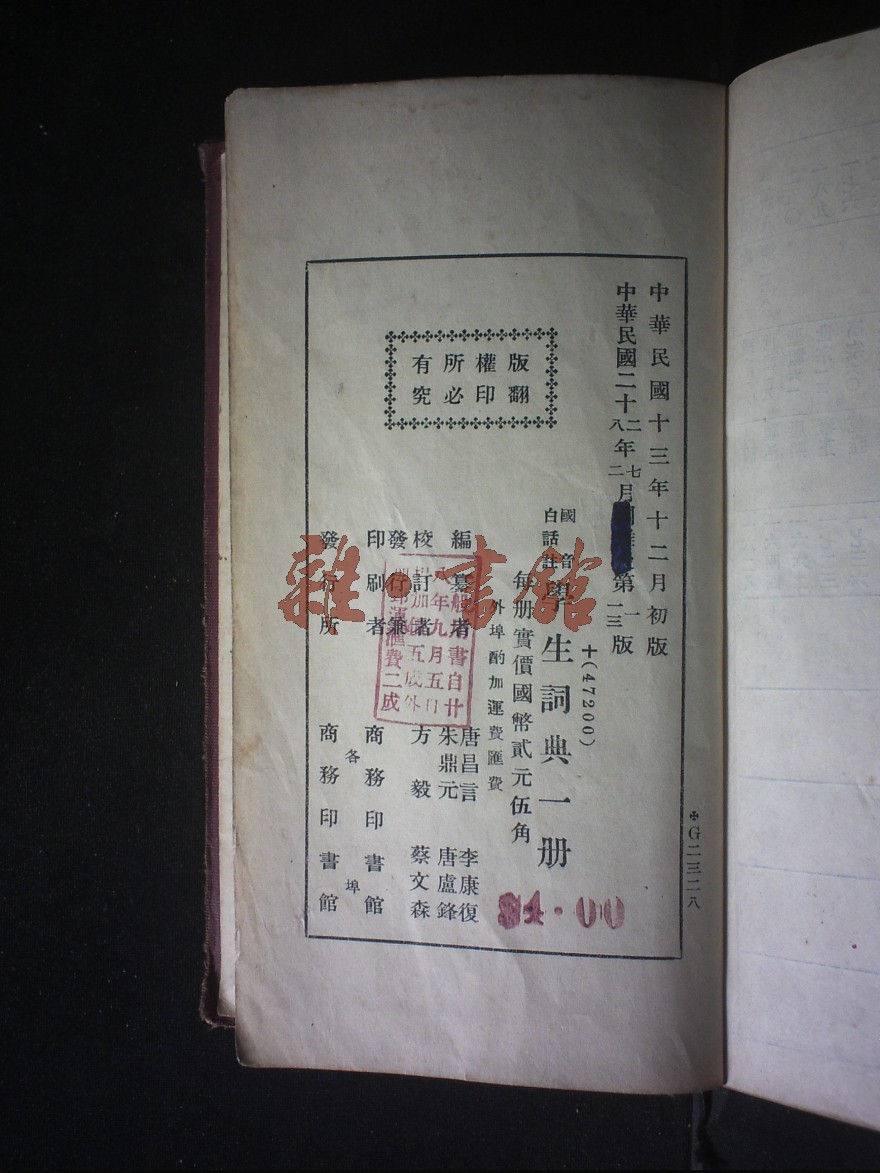 中華民國十三年十二月初版
中華民國二十二八年七二月
第一二三版
十(47200)
國音
白話註
學生詞典一册
每册實價國幣貳元伍角
外埠酌加運費匯費
版權所有
翻印必究
編纂者
唐昌言
李康復
朱鼎元
唐盧鋒
校訂者
方毅
蔡文森
發行兼
印刷者
商務印書館
發行所
各埠
商務印書館
書自廿
年九月五日
加五成外
運匯費二成
84.00
G二三二八
雜·書館